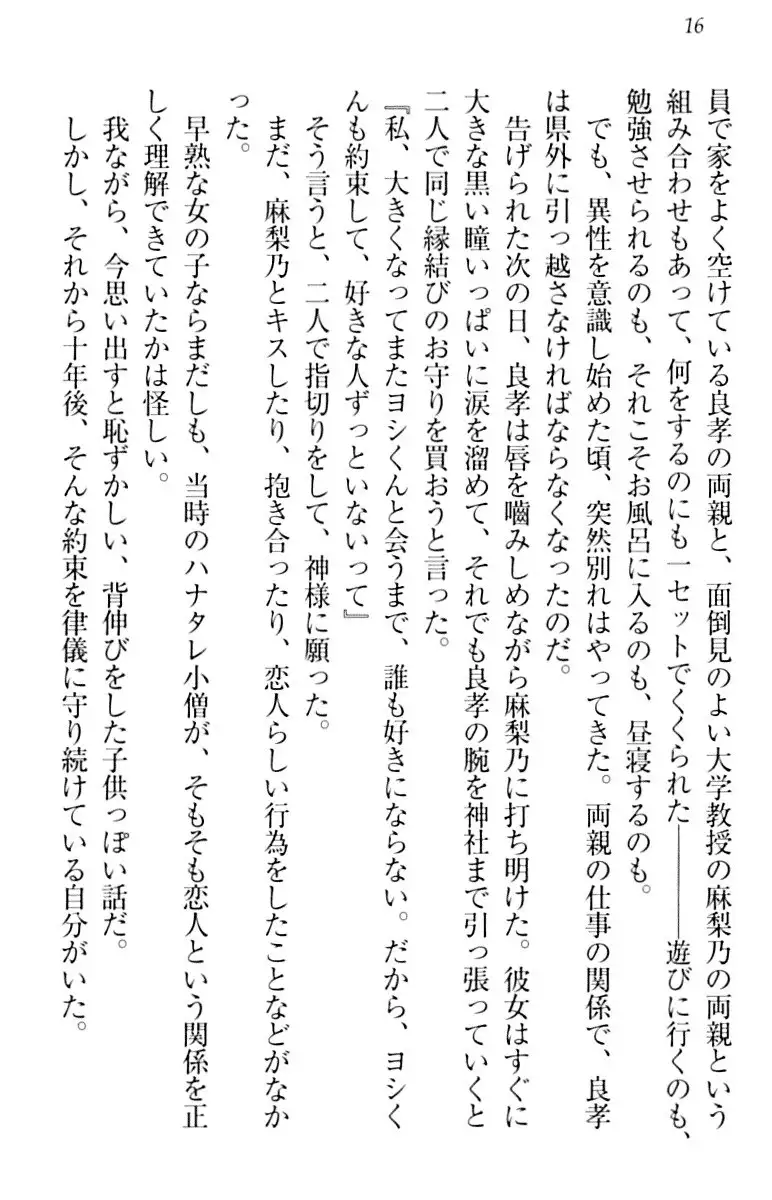 16
員で家をよく空けている良孝の両親と、面倒見のよい大学教授の麻梨乃の両親という
組み合わせもあって、何をするのにも一セットでくくられた――――遊びに行くのも、
勉強させられるのも、それこそお風呂に入るのも、昼寝するのも。
でも、異性を意識し始めた頃、突然別れはやってきた。両親の仕事の関係で、良孝
は県外に引っ越さなければならなくなったのだ。
告げられた次の日、良孝は唇を嚙みしめながら麻梨乃に打ち明けた。彼女はすぐに
大きな黒い瞳いっぱいに涙を溜めて、それでも良孝の腕を神社まで引っ張っていくと
二人で同じ縁結びのお守りを買おうと言った。
『私、大きくなってまたヨシくんと会うまで、誰も好きにならない。だから、ヨシく
んも約束して、好きな人ずっといないって』
そう言うと、二人で指切りをして、神様に願った。
まだ、麻梨乃とキスしたり、抱き合ったり、恋人らしい行為をしたことなどがなか
った。
早熟な女の子ならまだしも、当時のハナタレ小僧が、そもそも恋人という関係を正
しく理解できていたかは怪しい。
我ながら、今思い出すと恥ずかしい、背伸びをした子供っぽい話だ。
しかし、それから十年後、そんな約束を律儀に守り続けている自分がいた。